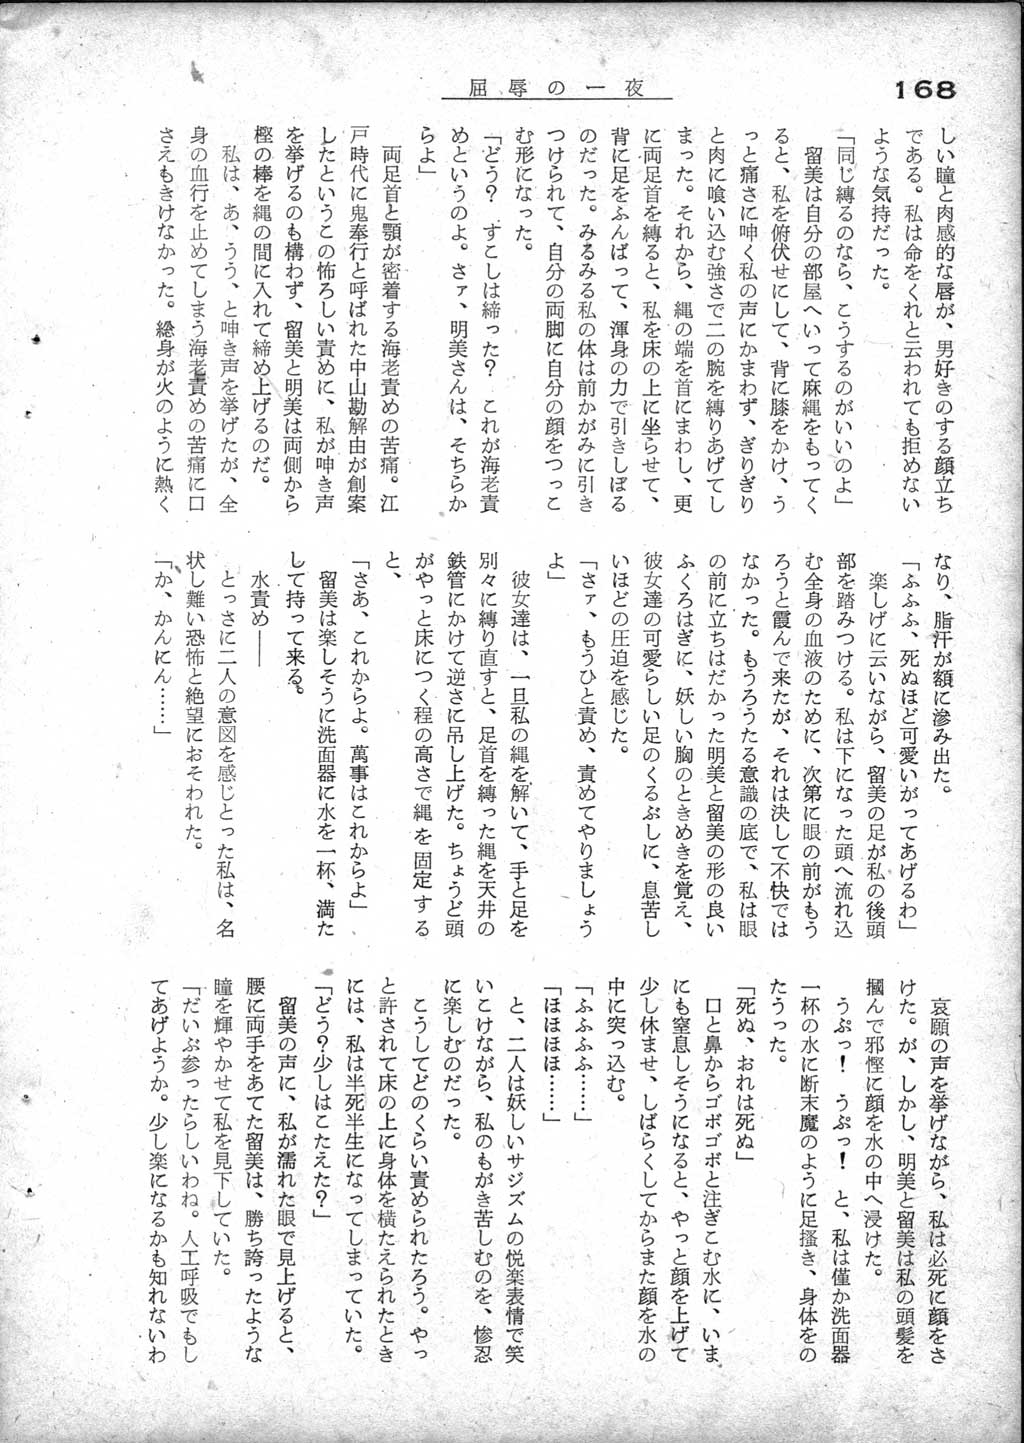 168
屈辱の一夜
しい瞳と肉感的な唇が、男好きのする顔立ち
である。私は命をくれと云われても拒めない
ような気持だった。
「同じ縛るのなら、こうするのがいいのよ」
留美は自分の部屋へいって麻縄をもってく
ると、私を俯伏せにして、背に膝をかけ、う
っと痛さに呻く私の声にかまわず、ぎりぎり
と肉に喰い込む強さで二の腕を縛りあげてし
まった。それから、縄の端を首にまわし、更
に両足首を縛ると、私を床の上に坐らせて、
背に足をふんばって、渾身の力で引きしぼる
のだった。みるみる私の体は前かがみに引き
つけられて、自分の両脚に自分の顔をつっこ
む形になった。
「どう？　すこしは締った？　これが海老責
めというのよ。さァ、明美さんは、そちらか
らよ」
両足首と顎が密着する海老責めの苦痛。江
戸時代に鬼奉行と呼ばれた中山勘解由が創案
したというこの怖ろしい責めに、私が呻き声
を挙げるのも構わず、留美と明美は両側から
樫の棒を縄の間に入れて締め上げるのだ。
私は、あ、うう、と呻き声を挙げたが、全
身の血行を止めてしまう海老責めの苦痛に口
さえもきけなかった。総身が火のように熱く
なり、脂汗が額に滲み出た。
「ふふふ、死ぬほど可愛いがってあげるわ」
楽しげに云いながら、留美の足が私の後頭
部を踏みつける。私は下になった頭へ流れ込
む全身の血液のために、次第に眼の前がもう
ろうと霞んで来たが、それは決して不快では
なかった。もうろうたる意識の底で、私は眼
の前に立ちはだかった明美と留美の形の良い
ふくろはぎに、妖しい胸のときめきを覚え、
彼女達の可愛らしい足のくるぶしに、息苦し
いほどの圧迫を感じた。
「さァ、もうひと責め、責めてやりましょう
よ」
彼女達は、一旦私の縄を解いて、手と足を
別々に縛り直すと、足首を縛った縄を天井の
鉄管にかけて逆さに吊し上げた。ちょうど頭
がやっと床につく程の高さで縄を固定する
と、
「さあ、これからよ。萬事はこれからよ」
留美は楽しそうに洗面器に水を一杯、満た
して持って来る。
水責め――
とっさに二人の意図を感じとった私は、名
状し難い恐怖と絶望におそわれた。
「か、かんにん……」
哀願の声を挙げながら、私は必死に顔をさ
けた。が、しかし、明美と留美は私の頭髪を
摑んで邪慳に顔を水の中へ浸けた。
うぷっ！　うぷっ！　と、私は僅か洗面器
一杯の水に断末魔のように足搔き、身体をの
たうった。
「死ぬ、おれは死ぬ」
口と鼻からゴボゴボと注ぎこむ水に、いま
にも窒息しそうになると、やっと顔を上げて
少し休ませ、しばらくしてからまた顔を水の
中に突っ込む。
「ふふふふ……」
「ほほほほ……」
と、二人は妖しいサジズムの悦楽表情で笑
いこけながら、私のもがき苦しむのを、惨忍
に楽しむのだった。
こうしてどのくらい責められたろう。やっ
と許されて床の上に身体を横たえられたとき
には、私は半死半生になってしまっていた。
「どう？少しはこたえた？」
留美の声に、私が濡れた眼で見上げると、
腰に両手をあてた留美は、勝ち誇ったような
瞳を輝やかせて私を見下していた。
「だいぶ参ったらしいわね。人工呼吸でもし
てあげようか。少し楽になるかも知れないわ